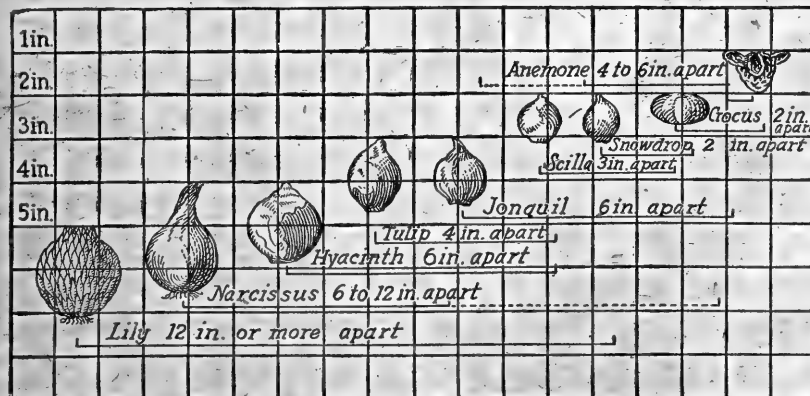 1in.
Anemone 4 to 6in. apart
2in.
Crocus 2in. apart
3in.
Snowdrop, 2 in. apart
Scilla 3in. apart
4in.
Jonquil 6in apart
5in.
Tulip 4 in. apart
Hyacinth 6in. apart
Narcissus 6 to 12 in. apart
Lily 12 in. or more apart